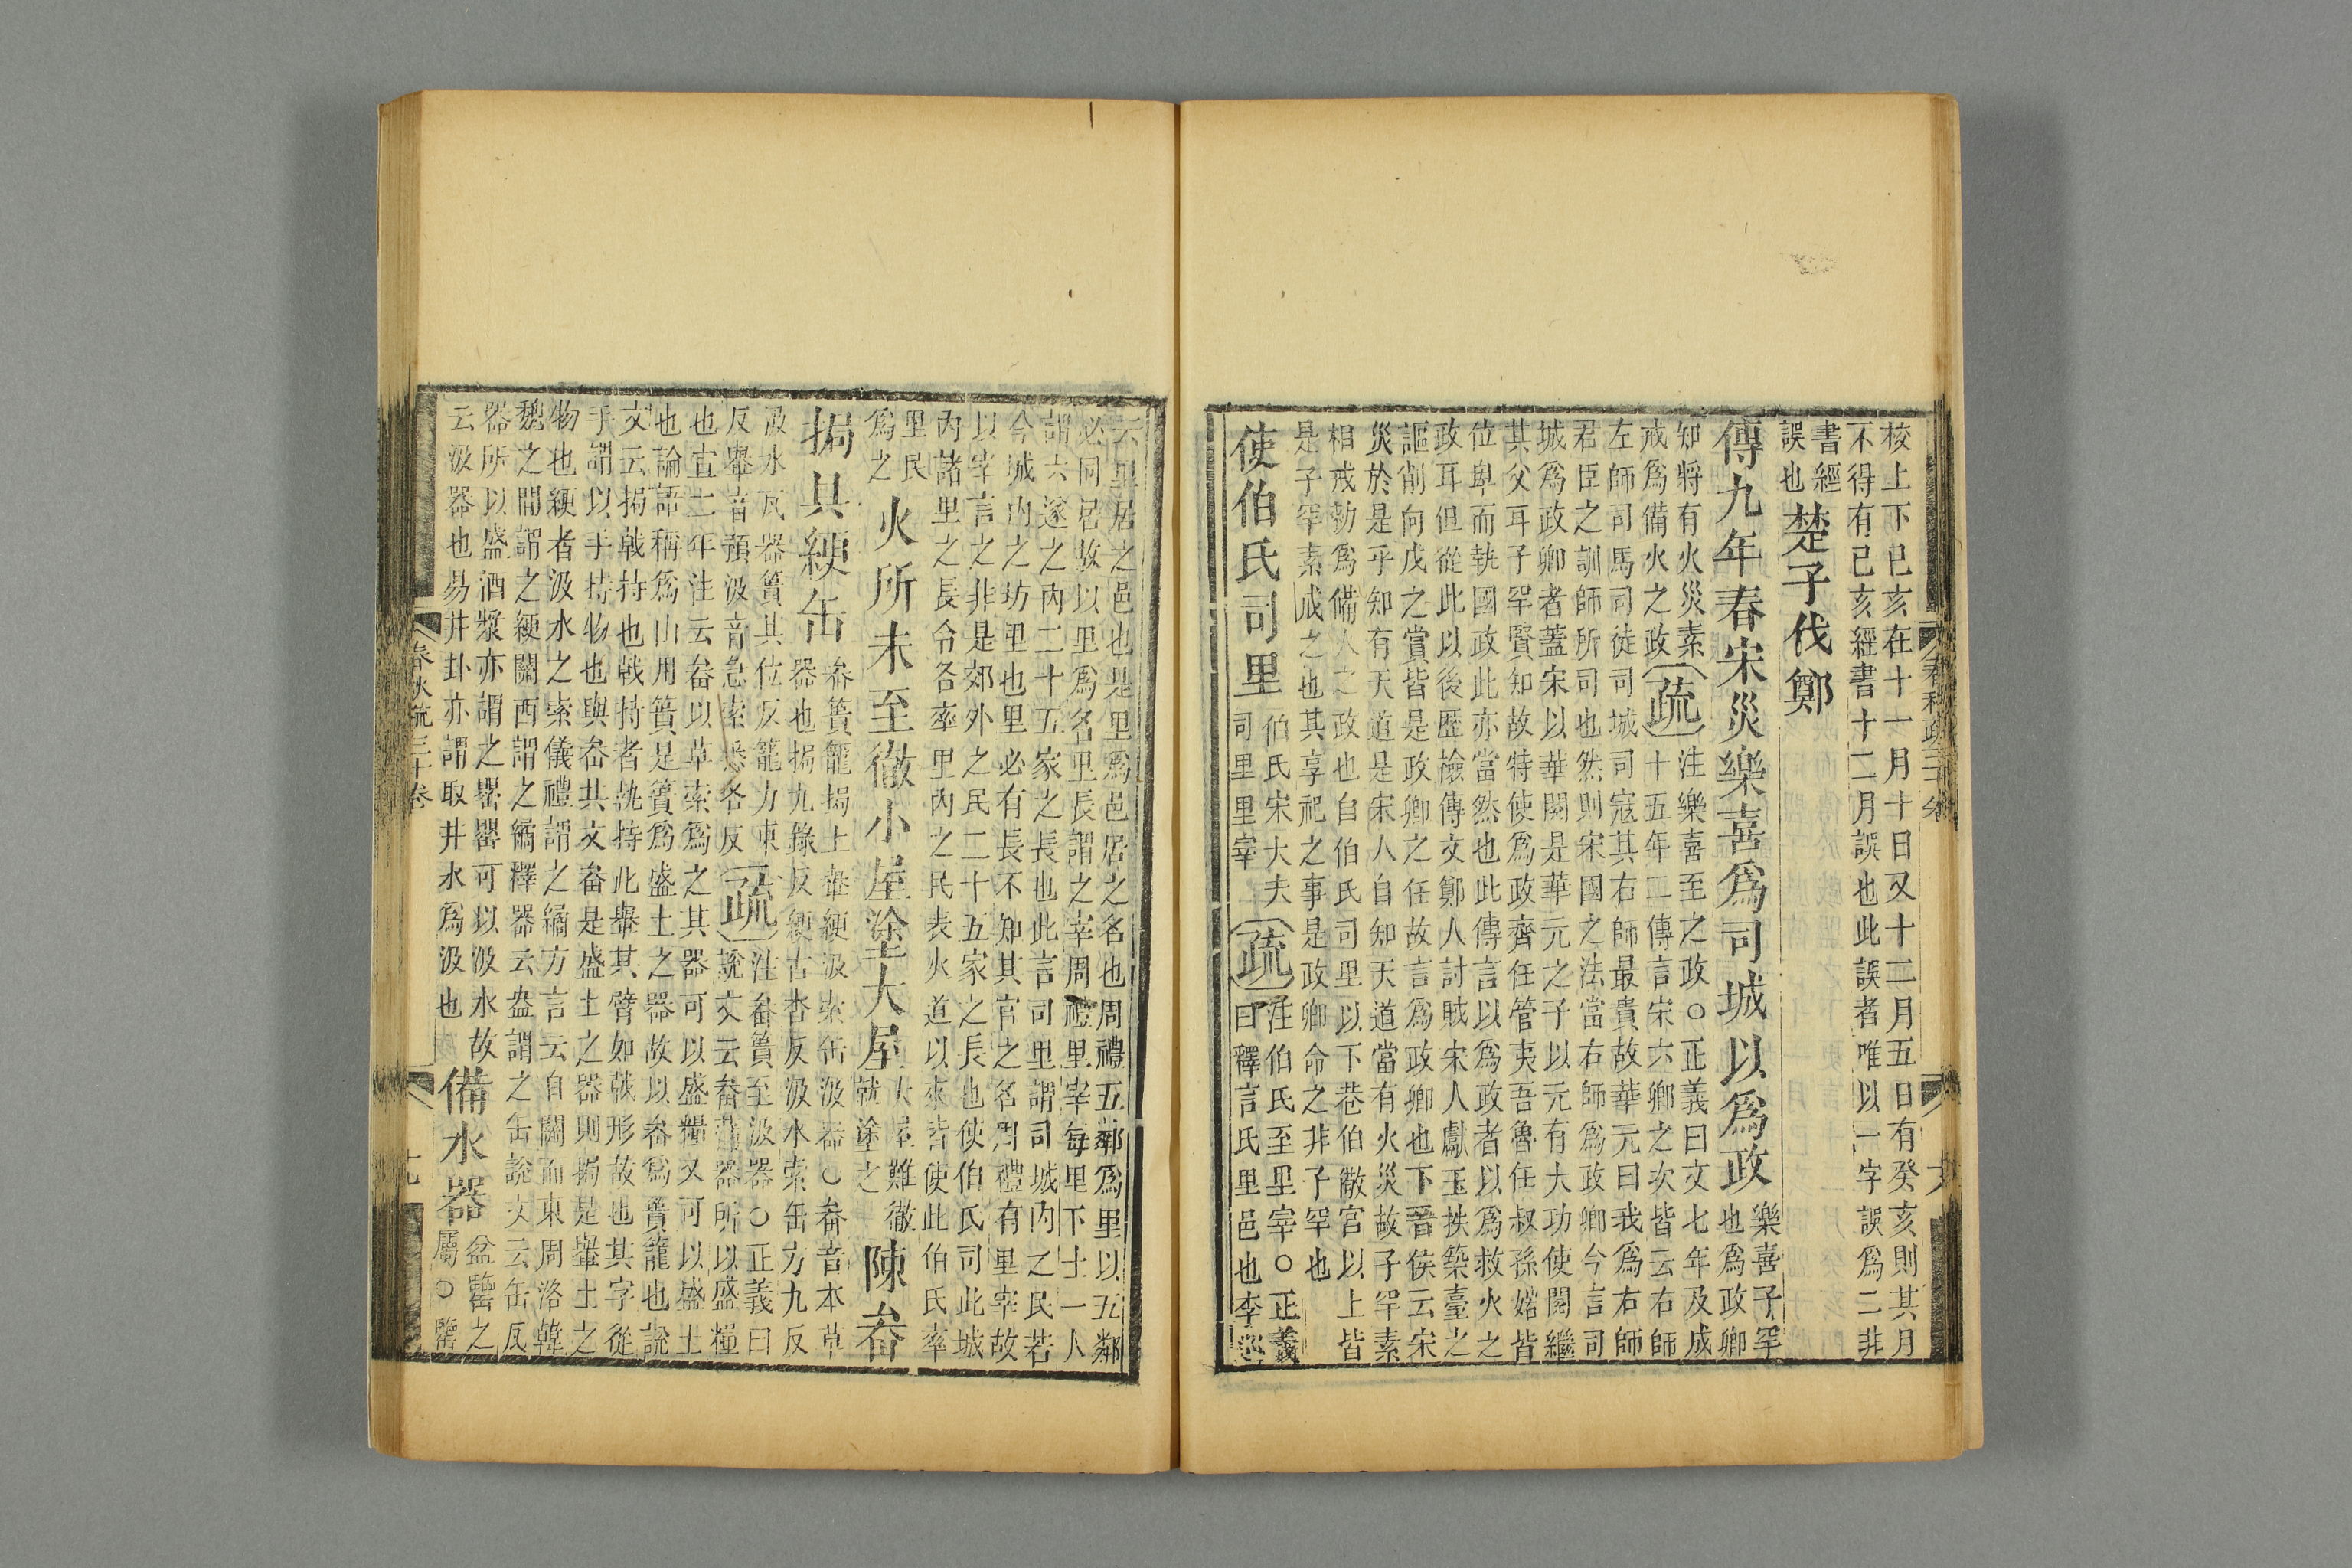 校上下已亥在十一月十日又十二月五日有癸亥則其月
不得有己亥經書十二月誤也此誤者唯以一字誤爲二非
書經
誤也
楚子伐鄭
傳九年春宋災樂喜爲司城以爲政
樂喜子罕
也爲政卿
知將有火災素
戒爲備火之政
疏
注樂喜至之政○正義曰文七年及成
十五年二傳言宋六卿之次皆云右師
左師司馬司徒司城司寇其右師最貴故華元曰我爲右師
君臣之訓師所司也然則宋國之法當右師爲政卿今言司
城爲政卿者蓋宋以華閱是華元之子以元有大功使閱繼
其父耳子罕賢知故特使爲政齊任管夷吾魯任叔孫婼皆
位卑而執國政此亦當然也此傳言以爲政者以爲救火之
政耳但從此以後歷檢傳文鄭人討賊宋人獻玉扶築臺之
謳削向戌之賞皆是政卿之任故言爲政卿也下晉侯云宋
災於是乎知有天道是宋人自知天道當有火災故子罕素
相戒勑爲備人之政也自伯氏司里以下巷伯儆宮以上皆
是子罕素戒之也其享祀之事是政卿命之非子罕也
使伯氏司里
伯氏宋大夫
司里里宰
疏
注伯氏至里宰○正義
曰釋言氏里邑也李巡
云里居之邑也是里爲邑居之名也周禮五鄰爲里以五鄰
必同居故以里爲名里長謂之宰周禮里宰每里下士一人
謂六遂之內二十五家之長也此言司里謂司城內之民若
今城內之坊里也里必有長不知其官之名周禮有里宰故
以宰言之非是郊外之民二十五家之長也使伯氏司此城
內諸里之長令各率里內之民表火道以來皆使此伯氏率
里民
爲之
火所未至徹小屋塗大屋
大屋難徹
就塗之
陳畚
挶具綆缶
畚簣籠挶土轝綆汲索缶汲器○畚音本草
器也挶九錄反綆古杏反汲水索缶方九反
汲水瓦器簣其位反籠力東
反轝音預汲音急索悉各反
疏
注畚簣至汲器○正義曰
說文云畚蒲器所以盛糧
也宣二年注云畚以草索爲之其器可以盛糧又可以盛土
也論語稱爲山用簣是簣爲盛土之器故以畚爲簣籠也說
文云挶戟持也戟持者執持此轝其臂如戟形故也其字從
手謂以手持物也與畚共文畚是盛土之器則挶是轝土之
物也綆者汲水之索儀禮謂之繘方言云自關而東周洛韓
魏之間謂之綆關西謂之繘釋器云盎謂之缶說文云缶瓦
器所以盛酒漿亦謂之罌罌可以汲水故
云汲器也易井卦亦謂取井水爲汲也
備水器
盆鑒之
屬○鑒